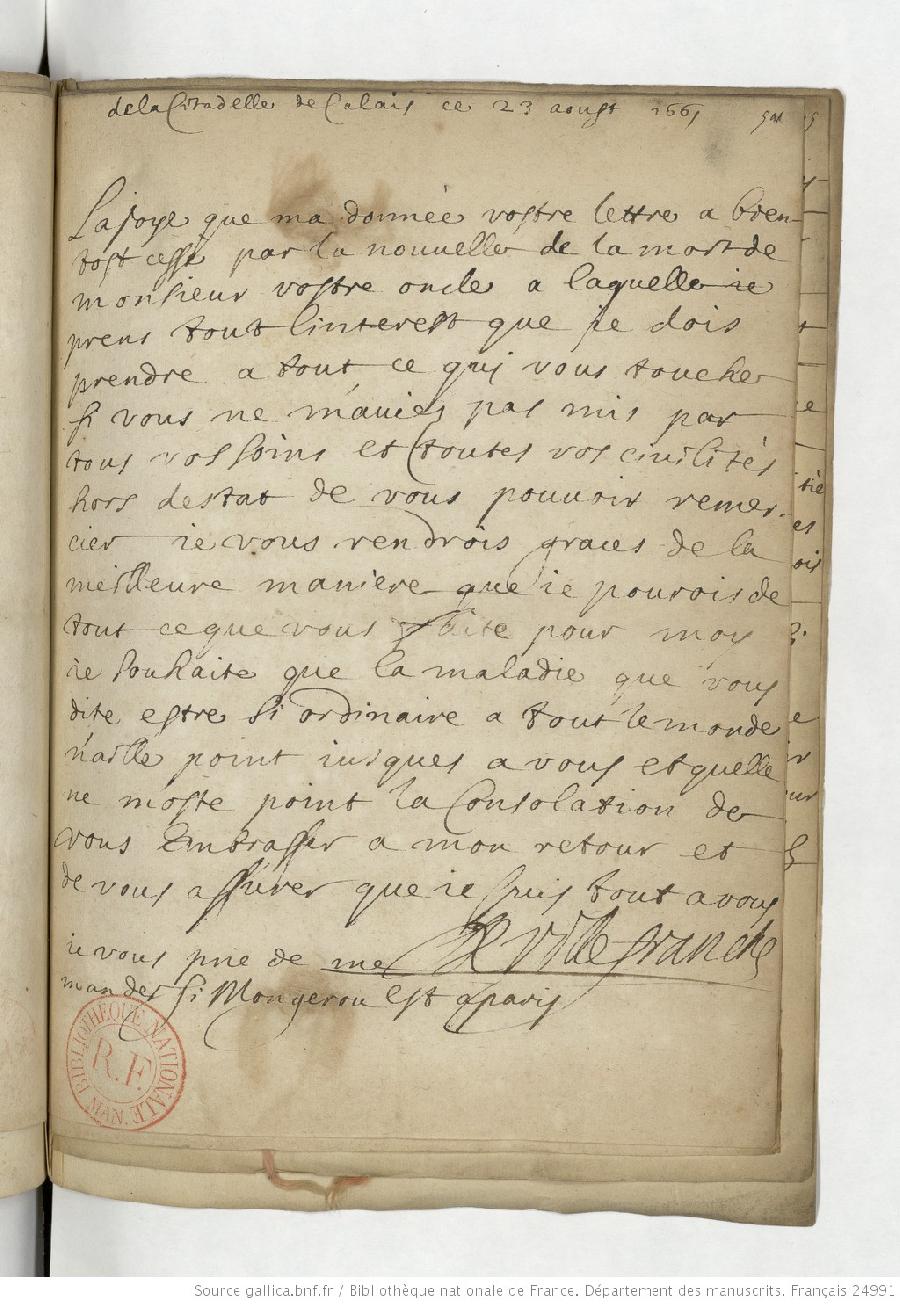 de la Citadelle de Calais ce 23 aoust 1661
La joye que ma donnée vostre lettre a bien-
tost cessé par la nouuelle de la mort de
monsieur vostre oncle a laquelle ie
prens tout linterest que je dois
prendre a tout ce quj vous touche
si vous ne mauies pas mis par
tous vos soins et toutes vos civilités
hors destat de vous pouuoir remer-
cier ie vous rendrois graces de la
meilleure maniere que ie pourois de
tout ce que vous faite pour moy
ie souhaite que la maladie que vous
dite estre si ordinaire a tout le monde
naille point iusques a vous et quelle
ne moste point la Consolation de
vous Embrasser a mon retour et
de vous assurer que ie suis tout a vous
ie vous prie de me Villefranche
mander si Mongerou est a paris
BIBLIOTHÈQUE NATIONALE
R.F.
MAN.
tié
es
ois
ur
Source gallica.bnf.fr / Bibliothèque nationale de France. Département des manuscrits. Français 24991